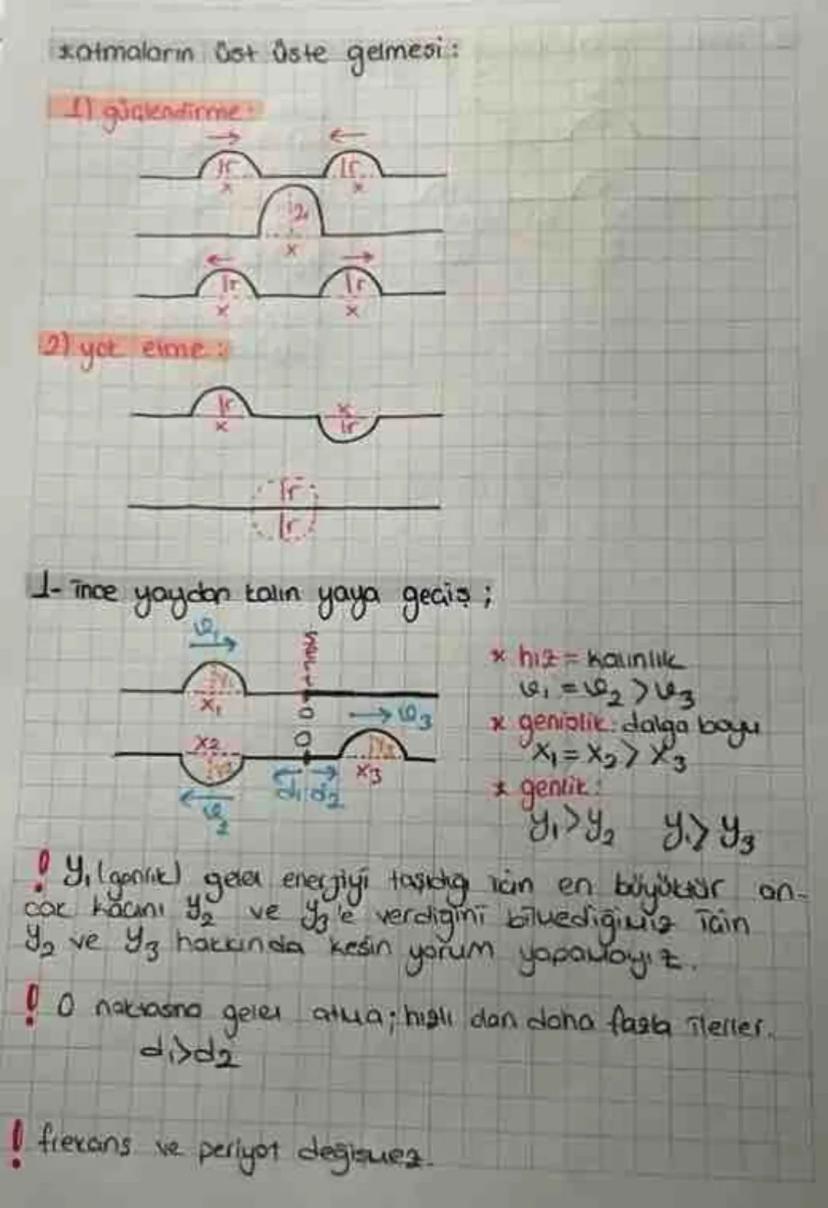 *atmaların üst üste gelmesi:
1) güçlendirme:
→ ←
r r
x x
2r
x
← →
r r
x x
2) yok etme:
r x
x r
r
r
1- ince yaydan kalın yaya geçiş;
υ₁
→
y₁
x₁
O
O
→ υ₃
x₂ y₂
x₃ y₃
← υ₂
← →
d₁ d₂
* hız = kalınlık
υ₁ = υ₂ > υ₃
* genişlik: dalga boyu
x₁ = x₂ > x₃
* genlik:
y₁ > y₂ y₁ > y₃
! y₁ (genlik) gelen enerjiyi taşıdığı için en büyüktür an-
cak kaçını y₂ ve y₃'e verdiğini bilmediğimiz için
y₂ ve y₃ hakkında kesin yorum yapamayız.
! O noktasına gelen atma; hızlı dan daha fazla ilerler.
d₁>d₂
! frekans ve periyot değişmez.